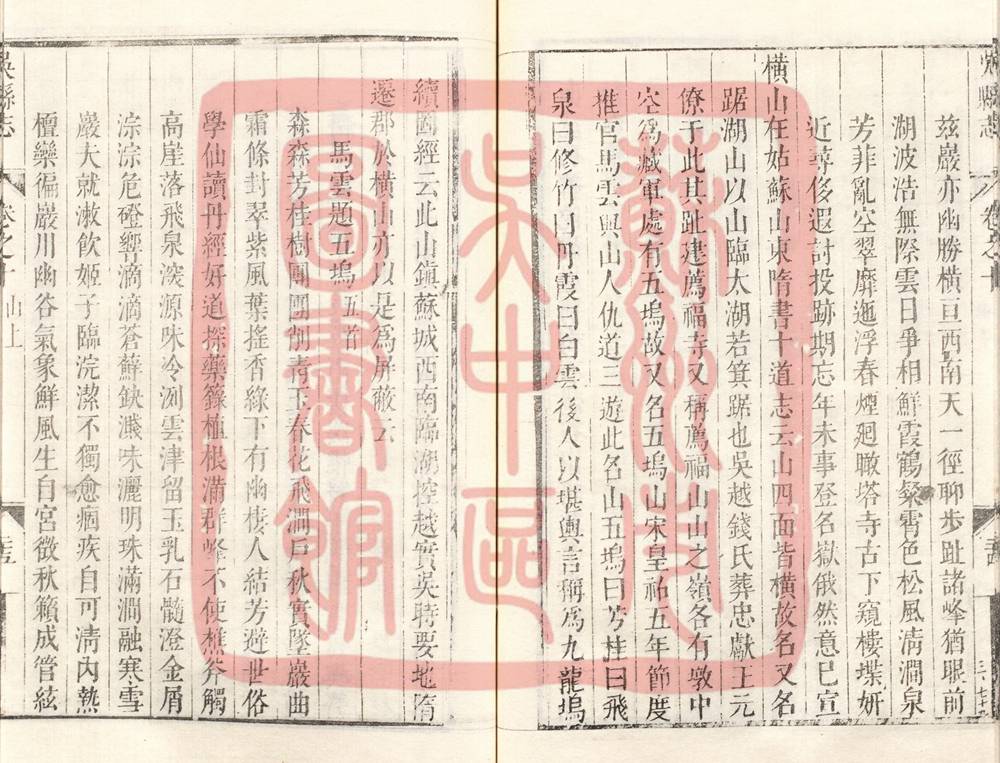 茲巖亦幽勝橫亘西南天一徑聊步趾諸峰猶眼前
湖波浩無際雲日爭相鮮霞鶴粲霄色松風清澗泉
芳菲亂空翠靡迤浮春煙廻瞰塔寺古下窺樓堞妍
近尋侈遐討投跡期忘年未事登名嶽俄然意已宣
橫山在姑蘇山東隋書十道志云山四面皆橫故名又名
踞湖山以山臨太湖若箕踞也吳越錢氏葬忠獻王元
僚于此其趾建薦福寺又稱薦福山山之嶺各有墩中
空爲藏軍處有五塢故又名五塢山宋皇祐五年節度
推官馬雲與山人仇道三遊此名山五塢曰芳桂曰飛
泉曰修竹曰丹霞曰白雲後人以堪輿言稱爲九龍塢
續圖經云此山鎭蘇城西南臨湖控越實吳時要地隋
遷郡於橫山亦以是爲屏蔽云
馬雲題五塢五首
森森芳桂樹團團刱青玉春花飛澗戶秋實墜巖曲
霜條封翠紫風葉搖香綠下有幽棲人結芳避世俗
學仙讀丹經好道探藥籙植根滿群峰不使樵斧觸
高崖落飛泉湥源味冷洌雲津留玉乳石髓澄金屑
淙淙危磴響滴滴蒼蘚缺濺味灑明珠滿澗融寒雪
巖大就漱飲姬子臨浣潔不獨愈痼疾自可淸內熱
檀欒徧巖川幽谷氣象鮮風生自宮徵秋籟成管絃
吳縣志
卷之十
山上
蘇州市
吳中區
圖書館